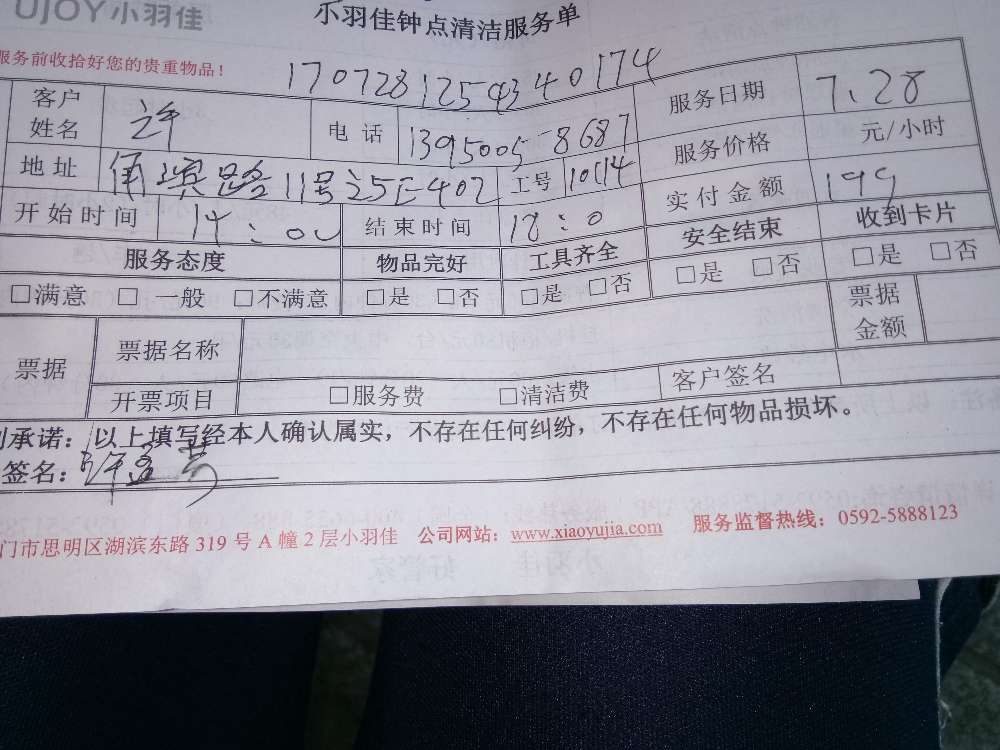 UJOY小羽佳
小羽佳钟点清洁服务单
服务前收拾好您的贵重物品!
170728125434017​4
客户姓名 许 电话 13950058687 服务日期 7.28
地址 路11号 402 工号 10114 服务价格 元/小时
开始时间 14:00 结束时间 18:0 实付金额 199
服务态度 物品完好 工具齐全 安全结束 收到卡片
□满意 □一般 □不满意 □是 □否 □是 □否 □是 □否 □是 □否
票据 票据名称 票据金额
开票项目 □服务费 □清洁费 客户签名
承诺:以上填写经本人确认属实,不存在任何纠纷,不存在任何物品损坏。
签名:许
门市思明区湖滨东路 319 号 A 幢 2 层小羽佳 公司网站:www.xiaoyujia.com 服务监督热线:0592-5888123